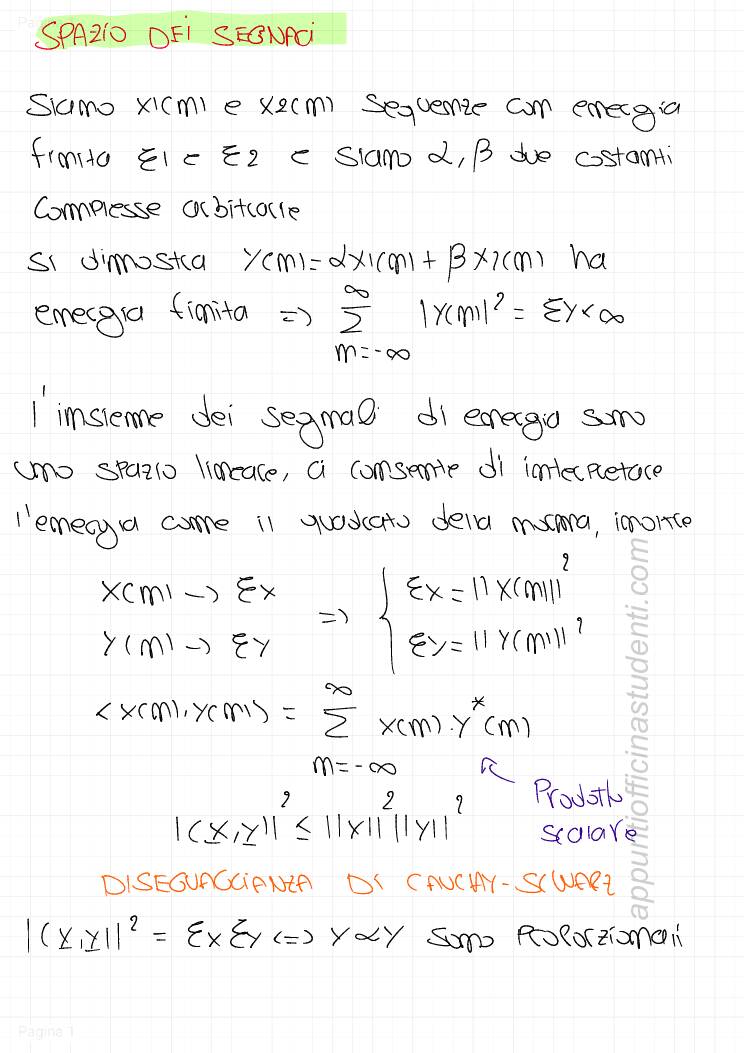 SPAZIO DEI SEGNALI
Siano x1(n) e x2(n) sequenze con energia
finita Ɛ1 e Ɛ2 e siano α, β due costanti
complesse arbitrarie
si dimostra y(n) = αx1(n) + βx2(n) ha
energia finita => ∞ Σ n=-∞ |y(n)|² = Ɛy < ∞
l'insieme dei segnali di energia sono
uno spazio lineare, ci consente di interpretare
l'energia come il quadrato della norma, inoltre
x(n) -> Ɛx => { Ɛx = ||x(n)||²
y(n) -> Ɛy Ɛy = ||y(n)||²
<x(n), y(n)> = ∞ Σ n=-∞ x(n)·y*(n)
Prodotto
scalare
|(x,y)|² ≤ ||x||² ||y||²
DISEGUAGLIANZA DI CAUCHY-SCWARZ
|(x,y)|² = Ɛx Ɛy <=> y α y sono proporzionali
appuntiofficinastudenti.com
Pagina 1